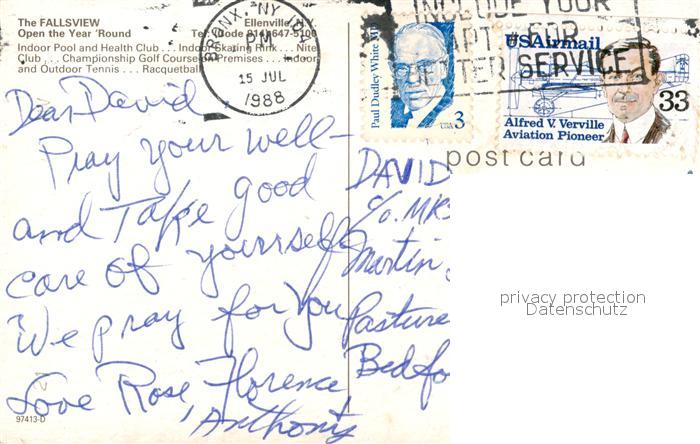 The FALLSVIEW Ellenville, N.Y.
Open the Year 'Round Tel: (Code 914) 647-5100
Indoor Pool and Health Club . . . Indoor Skating Rink . . . Nite
Club . . . Championship Golf Course on Premises . . . Indoor
and Outdoor Tennis . . . Racquetball
BRONX, NY
PM
15 JUL
1988
INCLUDE YOUR
APT # FOR
BETTER SERVICE
Paul Dudley White MD
USA 3
USAirmail
33
Alfred V. Verville
Aviation Pioneer
post card
Dear David,
Pray your well –
and Take good
care of yourself
We pray for You
Love Rose, Florence,
Anthony
DAVID
c/o. MRS
Martin
Pasture
Bedfo
97413-D
privacy protection
Datenschutz